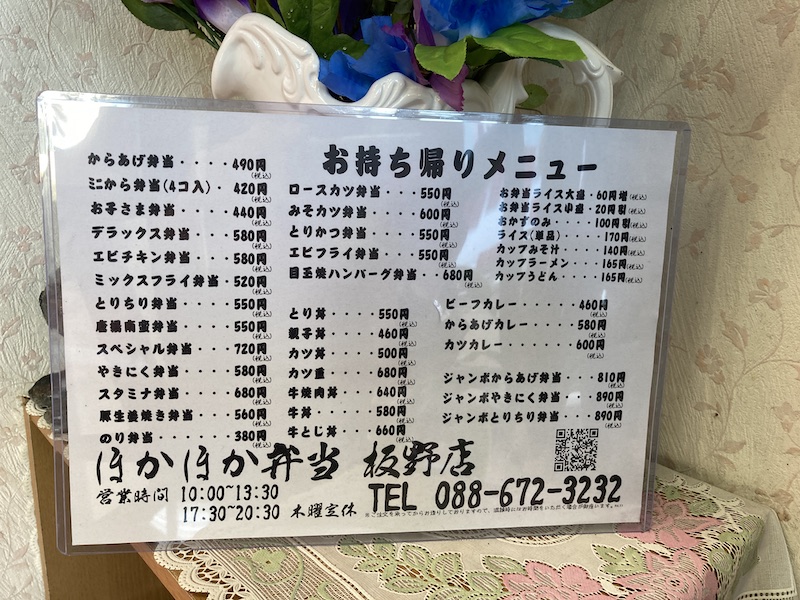 お持ち帰りメニュー
からあげ弁当・・・・490円(税込)
ミニから弁当(4コ入)・420円(税込)
お子さま弁当・・・・440円(税込)
デラックス弁当・・・580円(税込)
エビチキン弁当・・・580円(税込)
ミックスフライ弁当・520円(税込)
とりちり弁当・・・・550円(税込)
唐揚南蛮弁当・・・・550円(税込)
スペシャル弁当・・・720円(税込)
やきにく弁当・・・・580円(税込)
スタミナ弁当・・・・680円(税込)
豚生姜焼き弁当・・・560円(税込)
のり弁当・・・・・・380円(税込)
ロースカツ弁当・・・550円(税込)
みそカツ弁当・・・・600円(税込)
とりかつ弁当・・・・550円(税込)
エビフライ弁当・・・550円(税込)
目玉焼ハンバーグ弁当・・680円(税込)
とり丼・・・・550円(税込)
親子丼・・・・460円(税込)
カツ丼・・・・500円(税込)
カツ重・・・・680円(税込)
牛焼肉丼・・・640円(税込)
牛丼・・・・・580円(税込)
牛とじ丼・・・660円(税込)
お弁当ライス大盛・60円増(税込)
お弁当ライス小盛・20円引(税込)
おかずのみ・・・・100円引(税込)
ライス(単品)・・・・170円(税込)
カップみそ汁・・・・140円(税込)
カップラーメン・・・165円(税込)
カップうどん・・・・165円(税込)
ビーフカレー・・・・・460円(税込)
からあげカレー・・・・・580円(税込)
カツカレー・・・・・・・600円(税込)
ジャンボからあげ弁当・・810円(税込)
ジャンボやきにく弁当・・・890円(税込)
ジャンボとりちり弁当・・・890円(税込)
ほかほか弁当 板野店
営業時間 10:00~13:30
17:30~20:30 木曜定休
TEL 088-672-3232